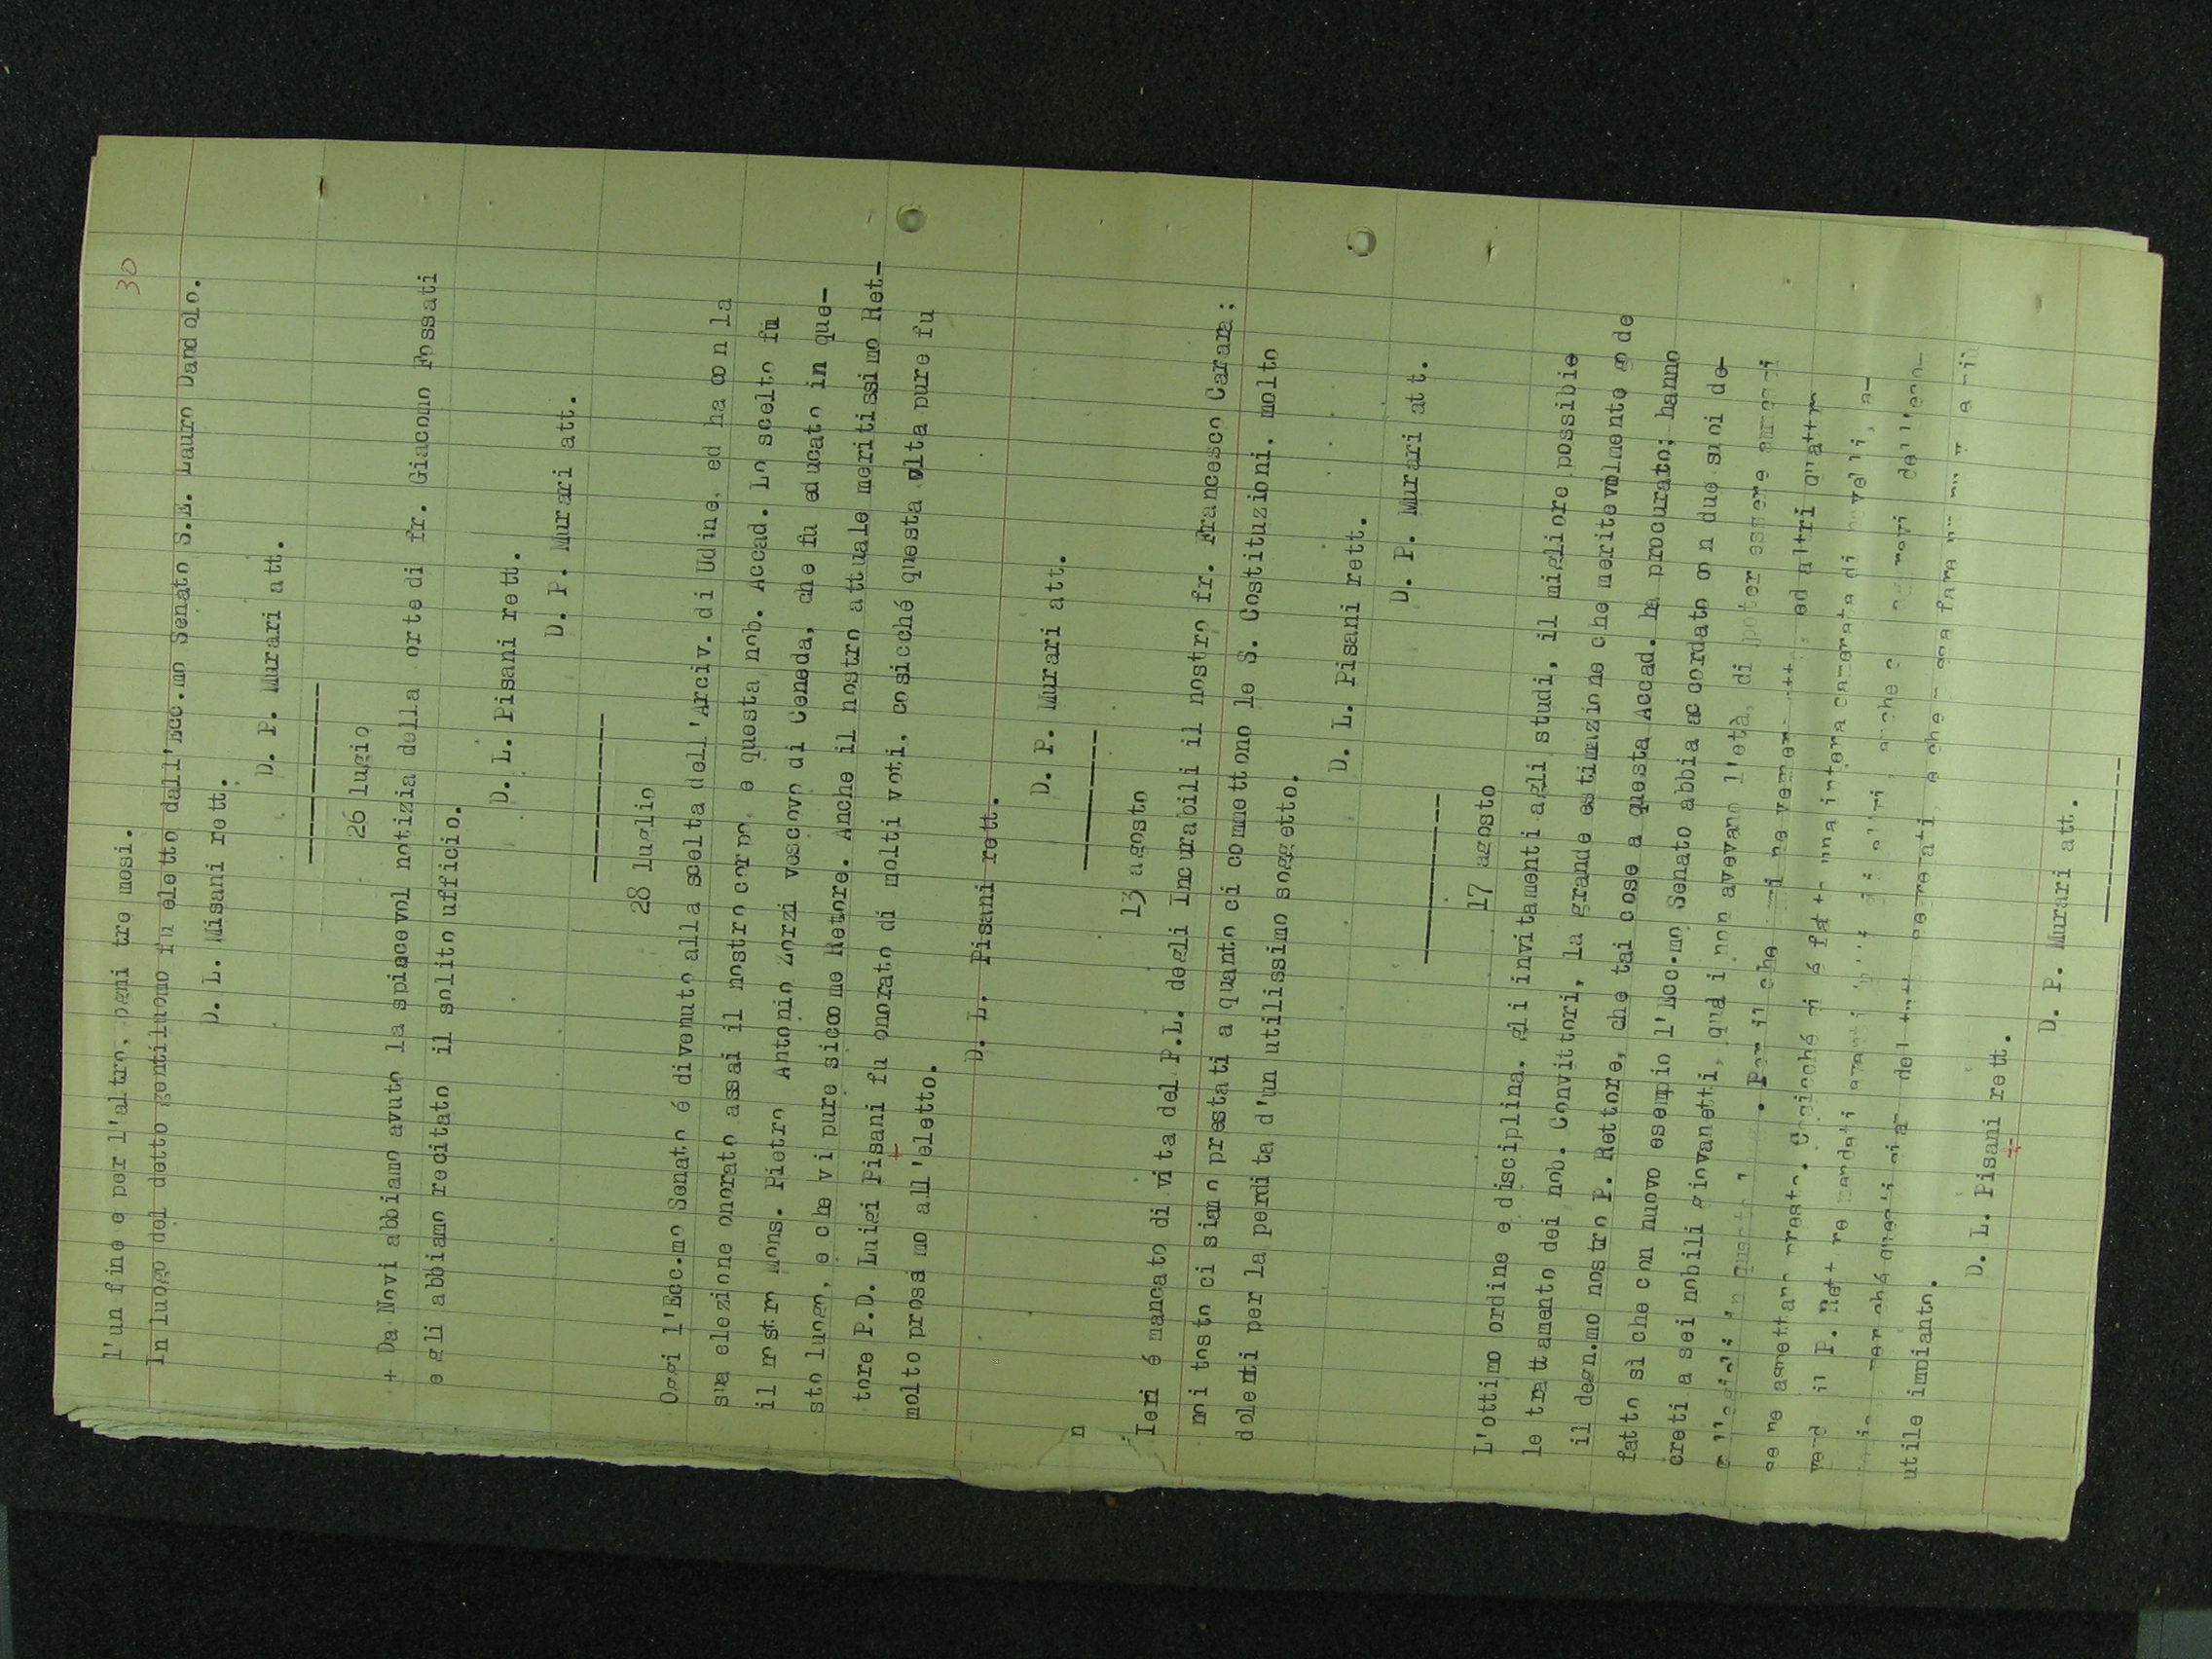 30
l'un fine e per l'altro, ogni tre mesi.
In luogo del detto gentiluomo fu eletto dall'Ecc.mo Senato S.E. Lauro Dandolo.
D. L. Misani rett.
D. P. Murari att.
26 lugio
+ Da Novi abbiamo avuto la spiacevol notizia della orte di fr. Giacomo Fossati
e gli abbiamo recitato il solito ufficio.
D. L. Pisani rett.
D. P. Murari att.
28 luglio
Oggi l'Ecc.mo Senato é divenuto alla scelta dell'Arciv. di Udine, ed ha con la
sua elezione onorato assai il nostro corpo, e questa nob. Accad. Lo scelto fu
il nostro Mons. Pietro Antonio Zorzi vescovo di Ceneda, che fu educato in que-
sto luogo, e che vi pure siccome Retore. Anche il nostro attuale meritissimo Ret-
tore P.D. Luigi Pisani fu onorato di molti voti, cosicché questa volta pure fu
molto prossimo all'eletto.
D. L. Pisani rett.
D. P. Murari att.
13 agosto
n
Ieri é mancato di vita del P.L. degli Incurabili il nostro fr. Francesco Carara;
noi tosto ci siamo prestati a quanto ci commettono le S. Costituzioni, molto
dolenti per la perdita d'un utilissimo soggetto.
D. L. Pisani rett.
D. P. Murari att.
17 agosto
L'ottimo ordine e disciplina, gli invitamenti agli studi, il migliore possibie
le trattamento dei nob. Convittori, la grande estimazione che meritevolmente gode
il degn.mo nostro P. Rettore, che tai cose a questa Accad. ha procurato; hanno
fatto sì che con nuovo esempio l'Ecc.mo Senato abbia accordato con due suoi de-
creti a sei nobili giovanetti, quai non avevano l'età, di poter essere ammessi
. Per il che noi ne vemer ed altri quattro
se ne aspettano presto. Cosicché si é fatto una intera camerata di novelli, a-
vend il P. Rettore mandati avanti altri, anche
perché questi sian del tutto separati, e che
utile immianto.
D. L. Pisani rett.
D. P. Murari att.